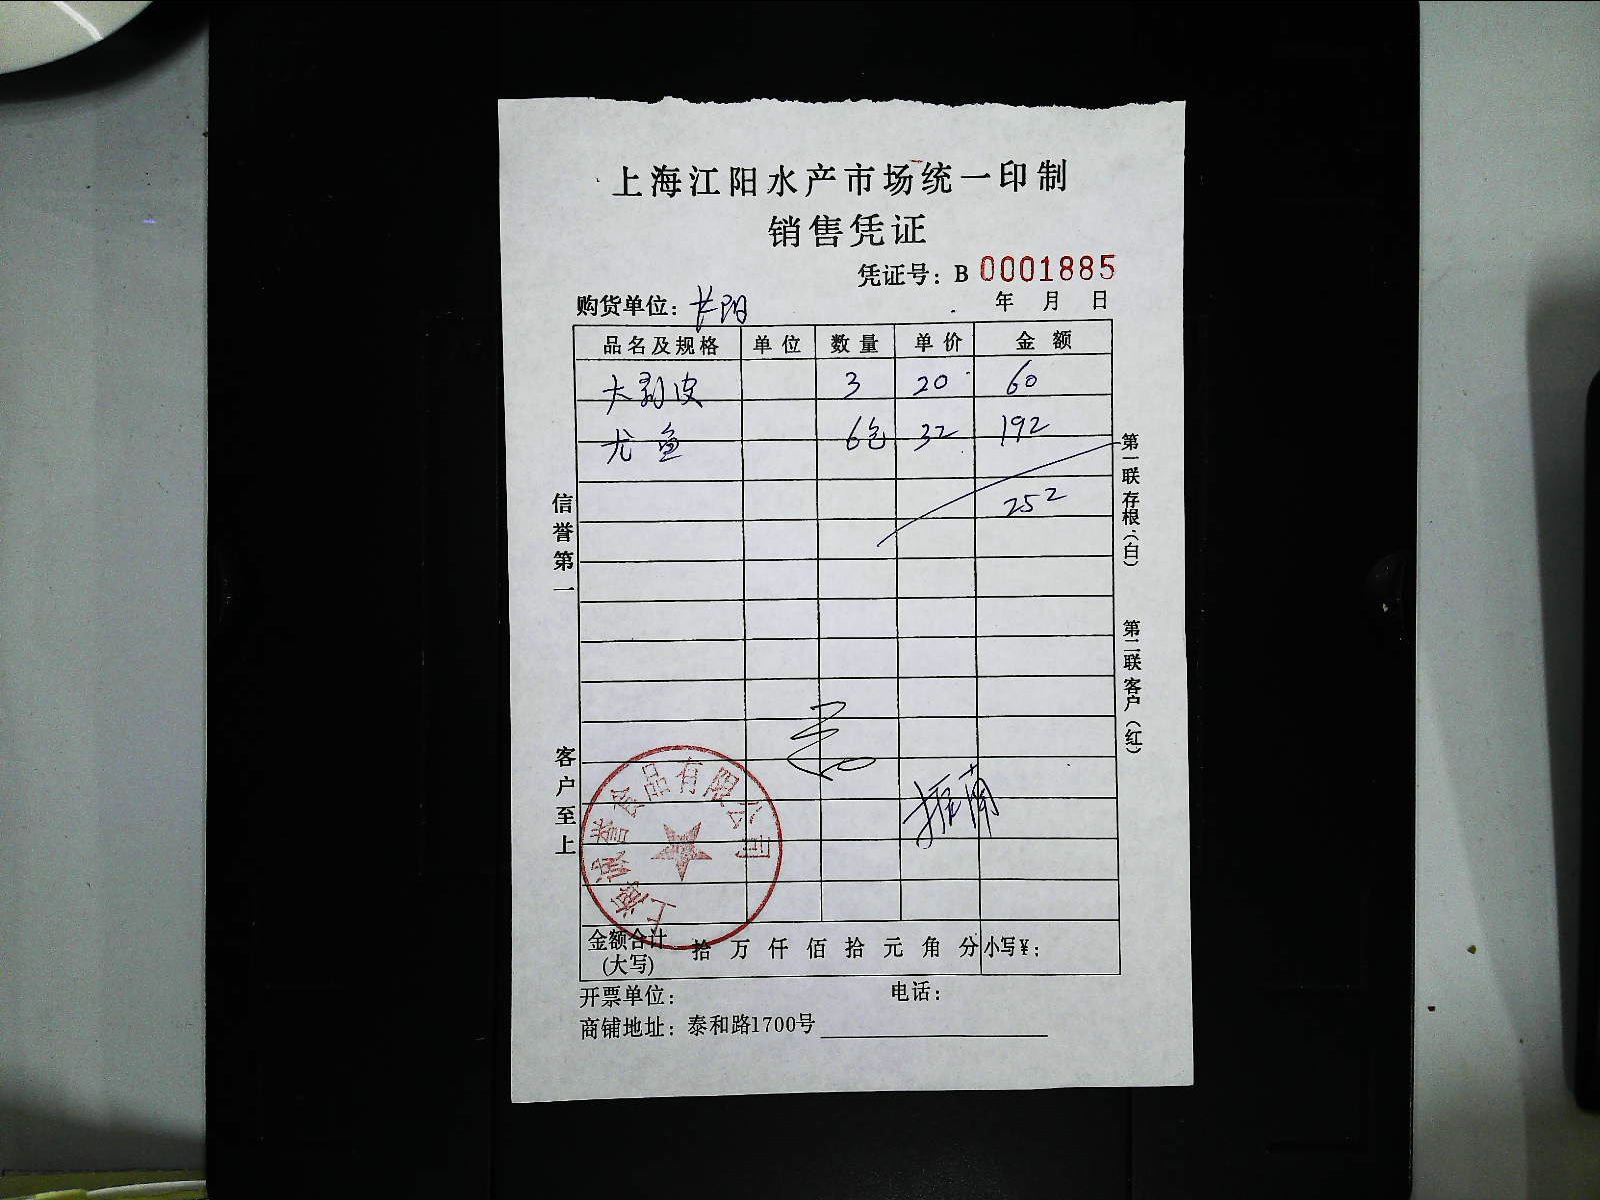 上海江阳水产市场统一印制
销售凭证
凭证号：B 0001885
购货单位：长阳 年 月 日
品名及规格 单位 数量 单价 金额
大剥皮 3 20 60
尤鱼 6包 32 192
252
信誉第一
客户至上
第一联存根（白）
第二联客户（红）
振南
上海诚誉食品有限公司
金额合计(大写) 拾 万 仟 佰 拾 元 角 分 小写¥：
开票单位： 电话：
商铺地址：泰和路1700号